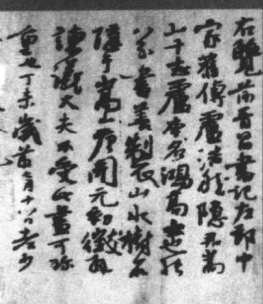 右覽前晉昌書記左郎中
家舊傳盧浩然隱居嵩
山十志盧本名鴻高士也能
八分書善製山水樹石
隱于嵩山唐開元初徵拜
諫議大夫不受此畫可珍
重也丁未歲前七月十八日老少